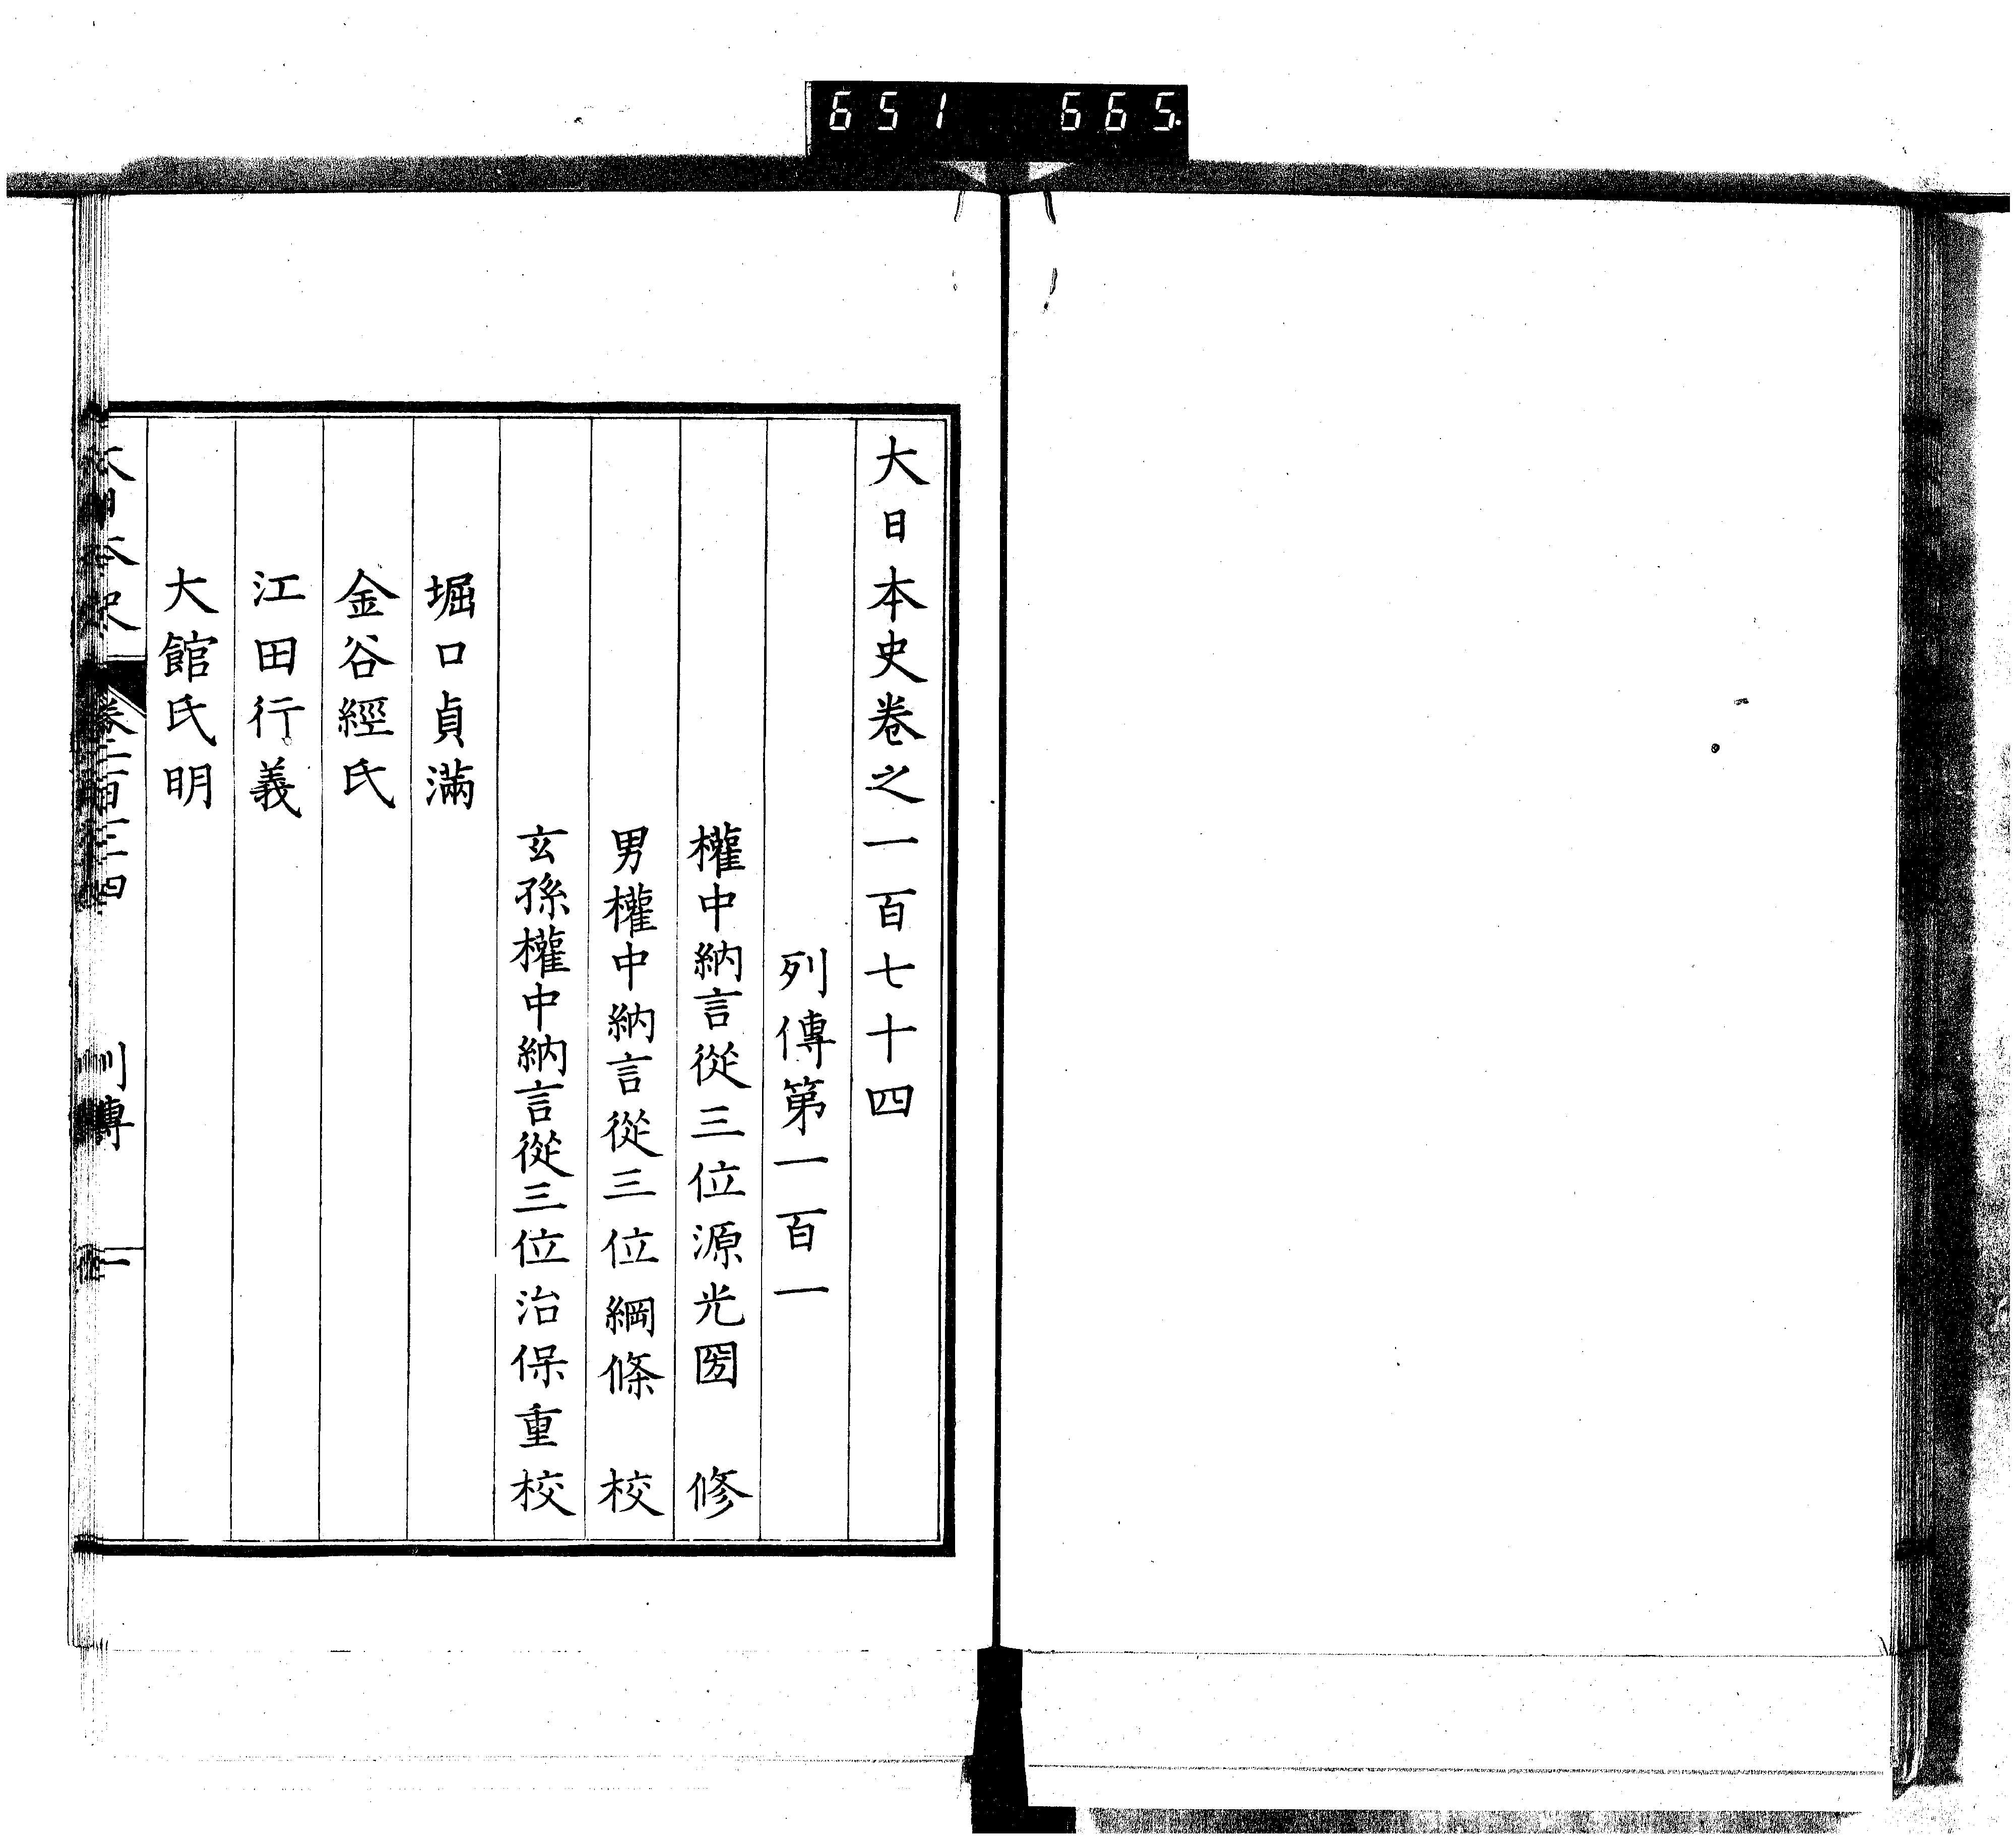 651 665
大日本史卷之一百七十四
列傳第一百一
權中納言從三位源光圀 修
男權中納言從三位綱條 校
玄孫權中納言從三位治保重校
堀口貞滿
金谷經氏
江田行義
大館氏明